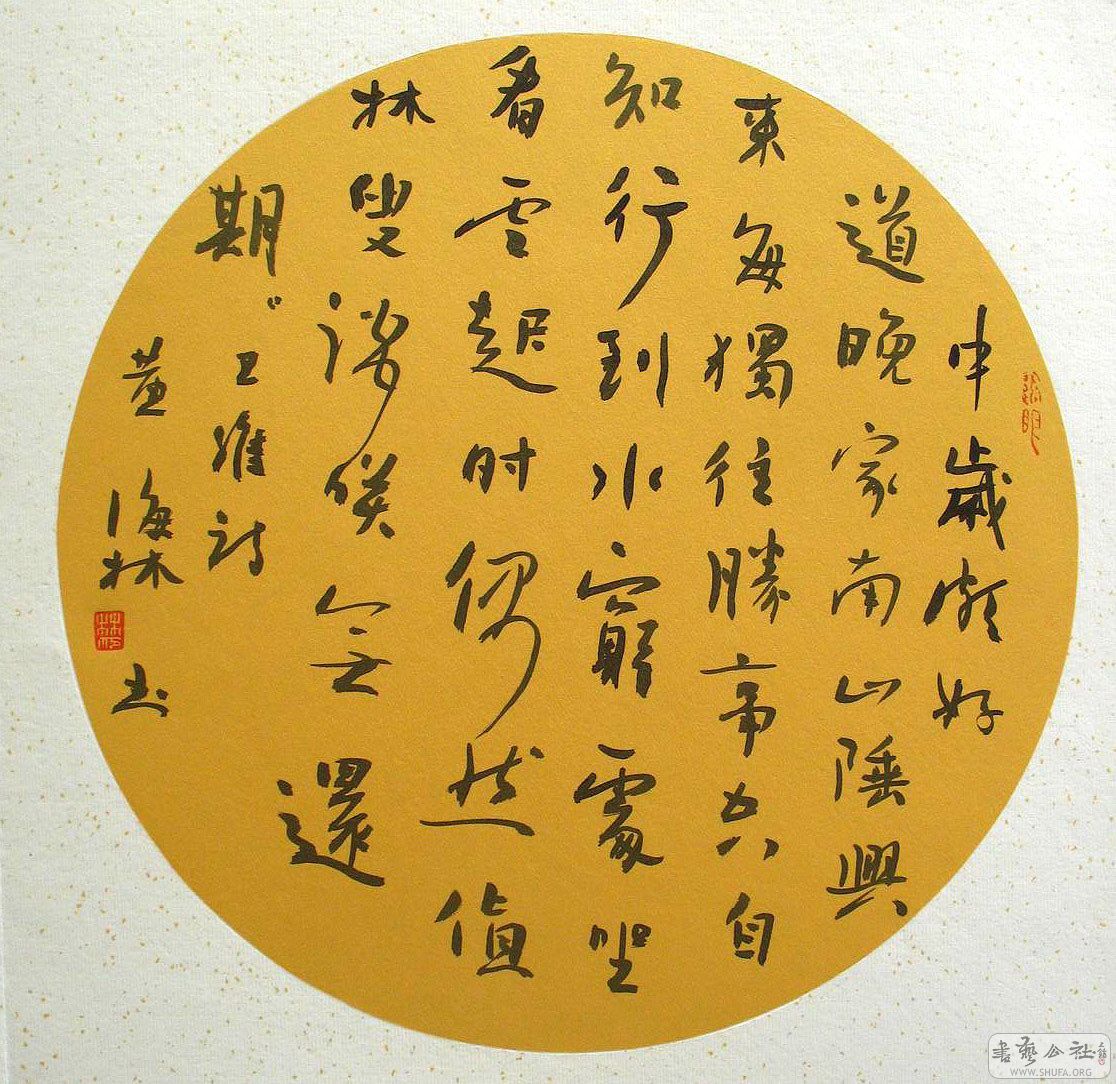 中歲頗好
道晚家南山陲興
來每獨往勝事空自
知行到水窮處坐
看雲起时偶然值
林叟談咲無還
期 王維詩
黄海林书
書藝公社
WWW.SHUFA.ORG